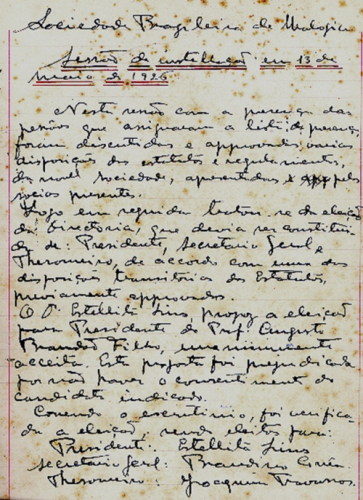 Sociedade Brasileira de Urologia
Sessão de installação em 13 de
Maio de 1926
Nesta sessão com a presença das
pessôas que assignaram a lista de presença
foram discutidas e approvadas varias
disposições dos estatutos e regulamentos,
da novel sociedade, apresentadas pelos
socios presentes.
Logo em seguida tratou-se da eleição
da Directoria, que devia ser constitui-
da de: Presidente, Secretario Geral e
Thesoureiro, de accordo com uma das
disposições transitorias dos Estatutos,
previamente approvados.
O Dr. Estellita Lins, propoz a eleição
para Presidente do Prof. Augusto
Brandão Filho, unanimemente
acceita. Esta proposta foi prejudicada
por não haver o consentimento do
candidato indicado.
Correndo o escrutinio, foi verifica-
da a eleição, sendo eleitos para:
Presidente: Estellita Lins
Secretario Geral: Brandino Corrêa
Thesoureiro: Joaquim Travassos.